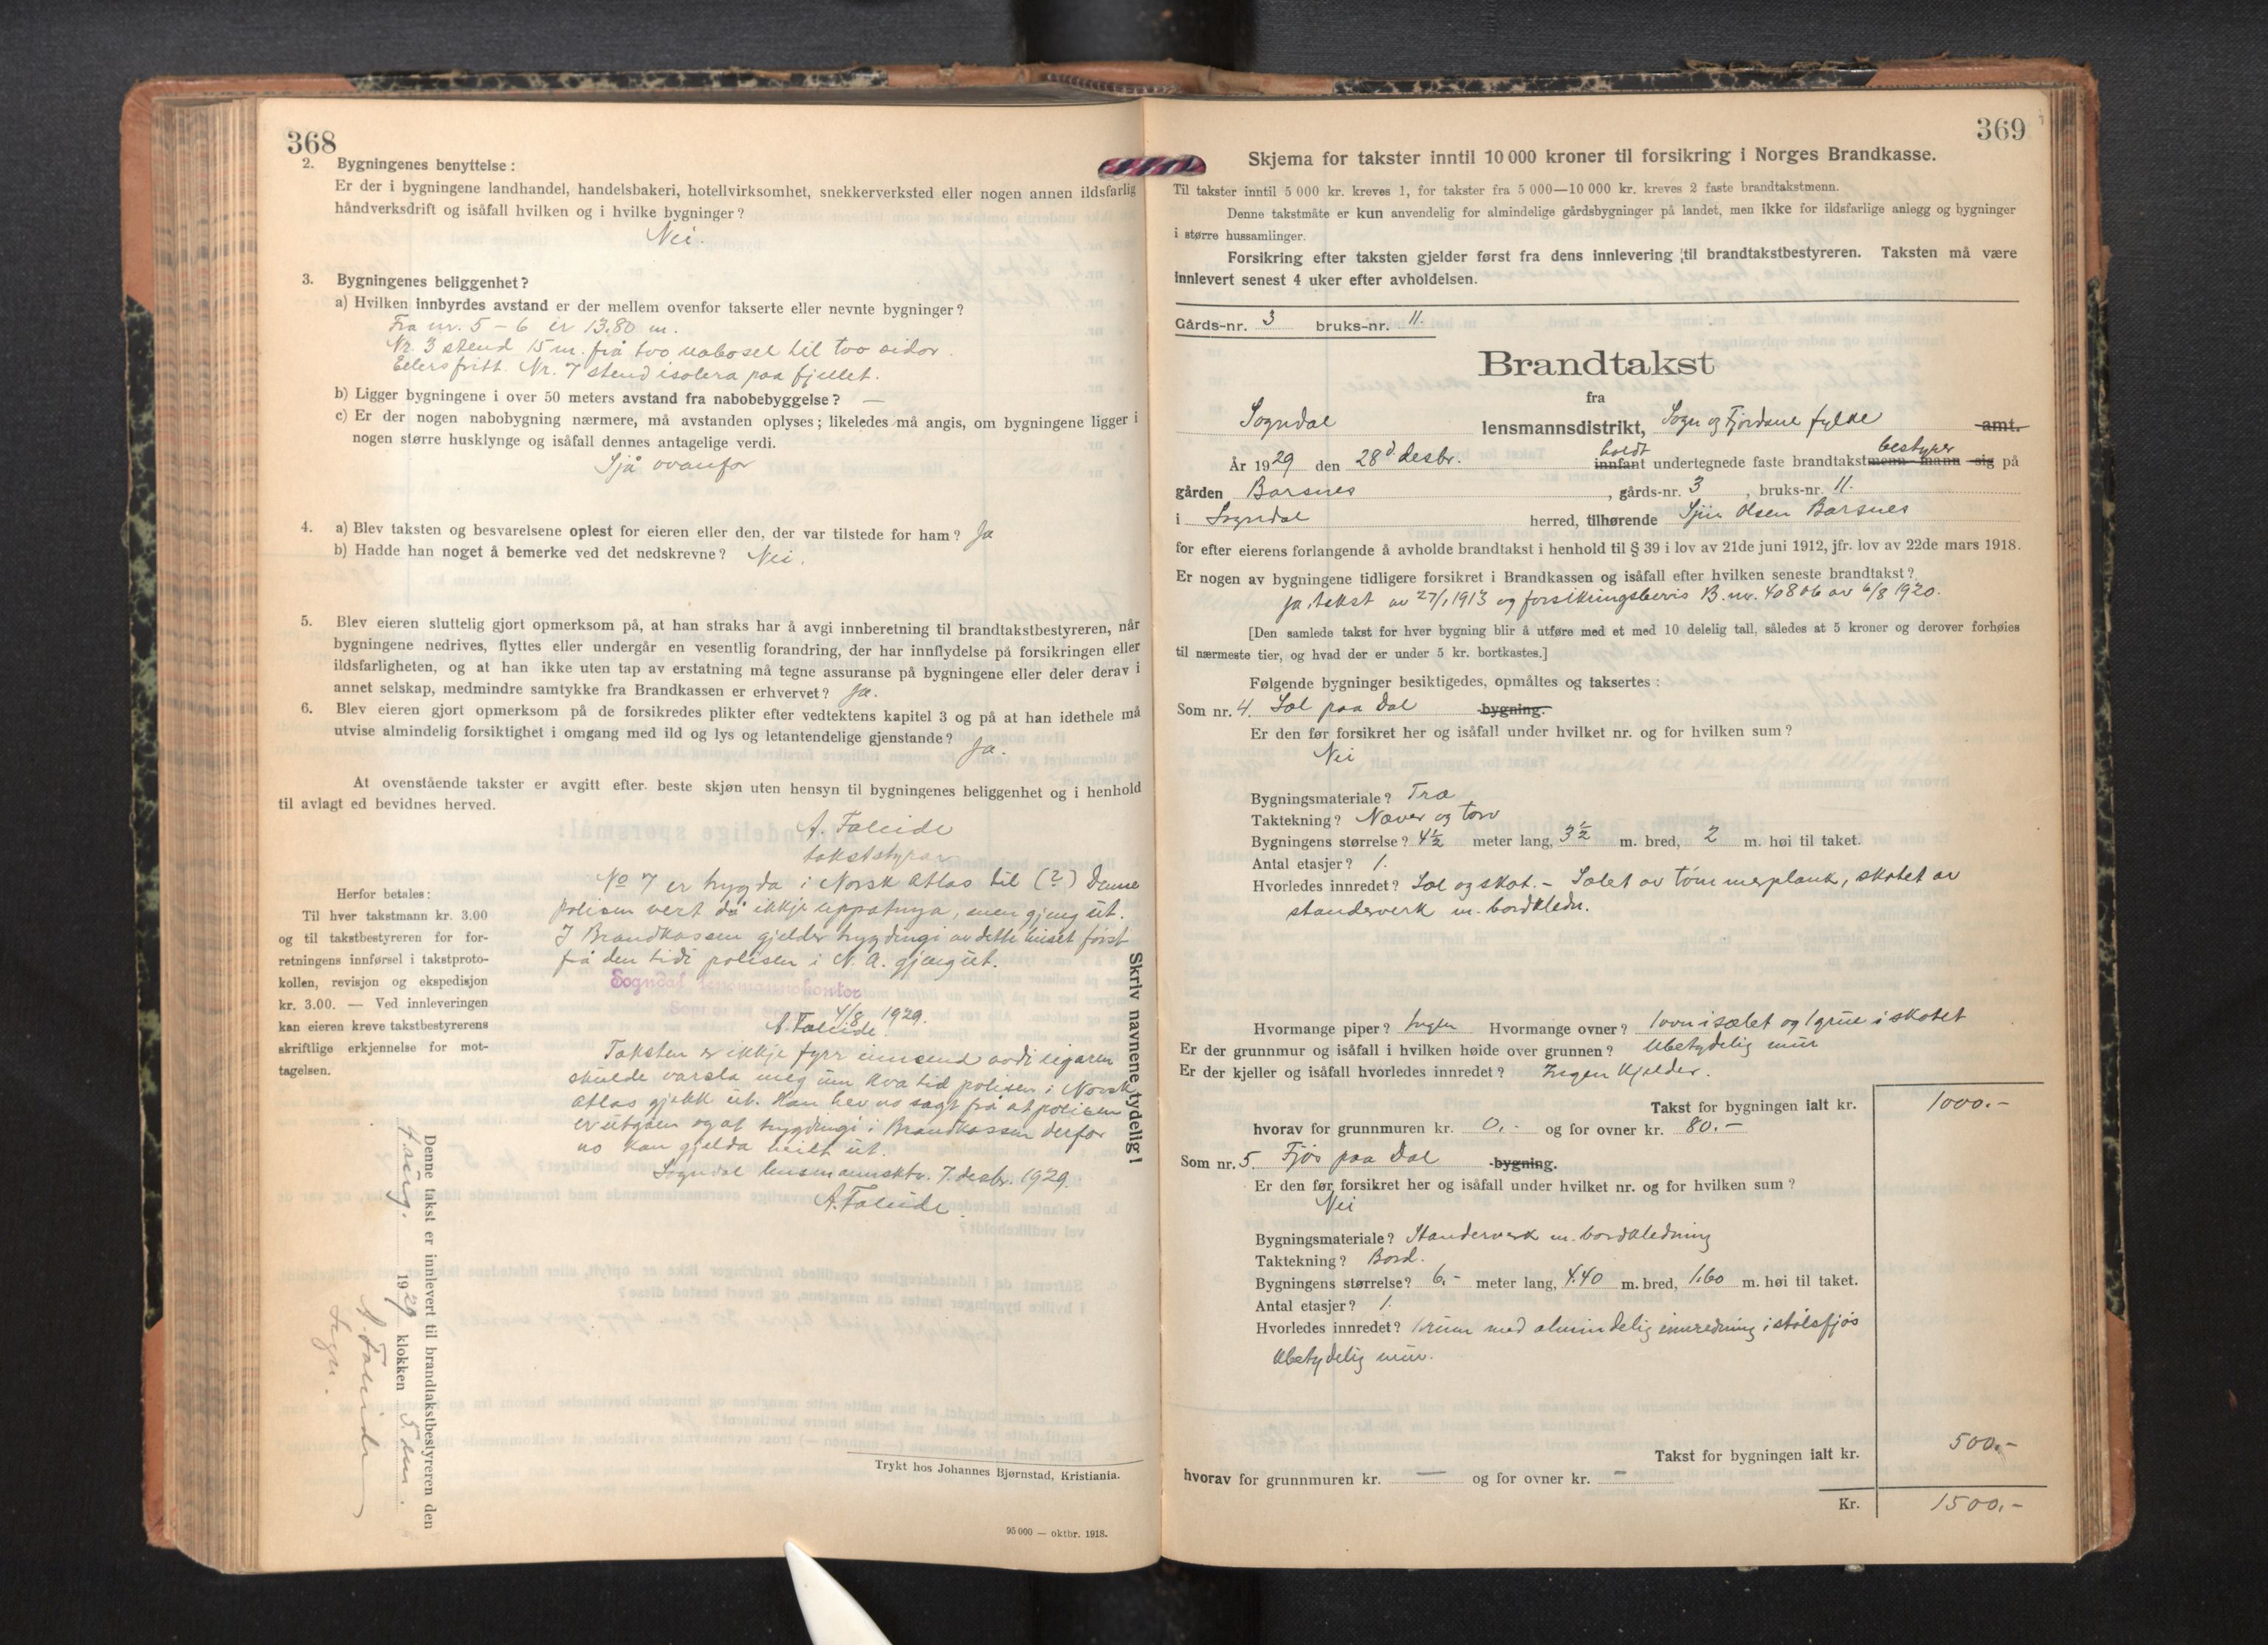 368
2. Bygningenes benyttelse:
Er der i bygningene landhandel, handelsbakeri, hotellvirksomhet, snekkerverksted eller nogen annen ildsfarlig
håndverksdrift og isåfall hvilken og i hvilke bygninger?
Nei.
3. Bygningenes beliggenhet?
a) Hvilken innbyrdes avstand er der mellem ovenfor takserte eller nevnte bygninger?
Fra nr. 5 - 6 er 13.80 m.
Nr. 3 stend 15 m. frå tvo nabosel til tvo sidor.
Ellers fritt. Nr. 7 stend isolera paa fjellet.
b) Ligger bygningene i over 50 meters avstand fra nabobebyggelse? —
c) Er der nogen nabobygning nærmere, må avstanden oplyses; likeledes må angis, om bygningene ligger i
nogen større husklynge og isåfall dennes antagelige verdi.
Sjå ovanfor
4. a) Blev taksten og besvarelsene oplest for eieren eller den, der var tilstede for ham? Ja
b) Hadde han noget å bemerke ved det nedskrevne? Nei.
5. Blev eieren sluttelig gjort opmerksom på, at han straks har å avgi innberetning til brandtakstbestyreren, når
bygningene nedrives, flyttes eller undergår en vesentlig forandring, der har innflydelse på forsikringen eller
ildsfarligheten, og at han ikke uten tap av erstatning må tegne assuranse på bygningene eller deler derav i
annet selskap, medmindre samtykke fra Brandkassen er erhvervet? Ja.
6. Blev eieren gjort opmerksom på de forsikredes plikter efter vedtektens kapitel 3 og på at han idethele må
utvise almindelig forsiktighet i omgang med ild og lys og letantendelige gjenstande? Ja.
At ovenstående takster er avgitt efter beste skjøn uten hensyn til bygningenes beliggenhet og i henhold
til avlagt ed bevidnes herved.
A. Faleide
takststyrar
No 7 er trygda i Norsk Atlas til (?) Denne
polisen vert då ikkje uppatnya, men gjeng ut.
I Brandkassen gjelder trygdingi av dette huset först
frå den tidi polisen i N. A. gjeng ut.
Sogndal lensmannskontor
4/8 1929.
A. Faleide
Taksten er ikkje fyrr innsend avdi eigaren
skulde varsla meg um kva tid polisen i Norsk
Atlas gjekk ut. Han hev no sagt frå at polisen
er utgåen og at trygdingi i Brandkassen derfor
no kan gjelda heilt ut.
Sogndal lensmannsktr. 7. desbr. 1929.
A. Faleide.
Herfor betales:
Til hver takstmann kr. 3.00
og til takstbestyreren for for-
retningens innførsel i takstproto-
kollen, revisjon og ekspedisjon
kr. 3.00. — Ved innleveringen
kan eieren kreve takstbestyrerens
skriftlige erkjennelse for mot-
tagelsen.
Skriv navnene tydelig!
Denne takst er innlevert til brandtakstbestyreren den
4. aug. 1929 klokken 5 em.
A. Faleide
Trykt hos Johannes Bjørnstad, Kristiania.
95 000 — oktbr. 1918.
369
Skjema for takster inntil 10 000 kroner til forsikring i Norges Brandkasse.
Til takster inntil 5 000 kr. kreves 1, for takster fra 5 000—10 000 kr. kreves 2 faste brandtakstmenn.
Denne takstmåte er kun anvendelig for almindelige gårdsbygninger på landet, men ikke for ildsfarlige anlegg og bygninger
i større hussamlinger.
Forsikring efter taksten gjelder først fra dens innlevering til brandtakstbestyreren. Taksten må være
innlevert senest 4 uker efter avholdelsen.
Gårds-nr. 3 bruks-nr. 11.
Brandtakst
fra
Sogndal lensmannsdistrikt, Sogn og Fjordane fylke amt.
År 1929 den 28d desbr. holdt innfant undertegnede faste brandtakstmenn mann bestyrer sig på
gården Barsnes, gårds-nr. 3, bruks-nr. 11.
i Sogndal herred, tilhørende Olsen Barsnes
for efter eierens forlangende å avholde brandtakst i henhold til § 39 i lov av 21de juni 1912, jfr. lov av 22de mars 1918.
Er nogen av bygningene tidligere forsikret i Brandkassen og isåfall efter hvilken seneste brandtakst?
Ja, takst av 27/1 1913 og forsikringsbevis B. nr. 40806 av 6/8 1920.
[Den samlede takst for hver bygning blir å utføre med et med 10 delelig tall, således at 5 kroner og derover forhøies
til nærmeste tier, og hvad der er under 5 kr. bortkastes.]
Følgende bygninger besiktigedes, opmåltes og taksertes:
Som nr. 4. Sæl paa Dal bygning.
Er den før forsikret her og isåfall under hvilket nr. og for hvilken sum?
Nei
Bygningsmateriale? Træ
Taktekning? Næver og torv
Bygningens størrelse? 4½ meter lang, 3½ m. bred, 2 m. høi til taket.
Antal etasjer? 1.
Hvorledes innredet? Sæl og skot. - Sælet av tömmerplank, skotet av
standerverk m. bordkledn.
Hvormange piper? Ingen Hvormange ovner? 1 ovn i sælet og 1 grue i skotet
Er der grunnmur og isåfall i hvilken høide over grunnen? Ubetydelig mur
Er der kjeller og isåfall hvorledes innredet? Ingen kjelder.
Takst for bygningen ialt kr. 1000.-
hvorav for grunnmuren kr. 0.- og for ovner kr. 80.-
Som nr. 5. Fjös paa Dal bygning.
Er den før forsikret her og isåfall under hvilket nr. og for hvilken sum?
Nei
Bygningsmateriale? Standerverk m. bordkledning
Taktekning? Bord.
Bygningens størrelse? 6.- meter lang, 4.40 m. bred, 1.60 m. høi til taket.
Antal etasjer? 1.
Hvorledes innredet? 1 rum med almindelig innredning i stölsfjös
Ubetydelig mur.
Takst for bygningen ialt kr. 500.-
hvorav for grunnmuren kr. — og for ovner kr. —
Kr. 1500.-